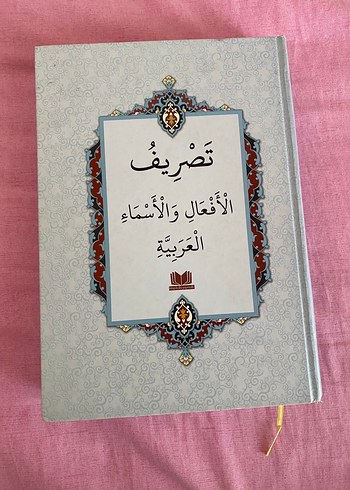 تَصْرِيفُ
الْأَفْعَالِ وَالْأَسْمَاءِ
الْعَرَبِيَّةِ